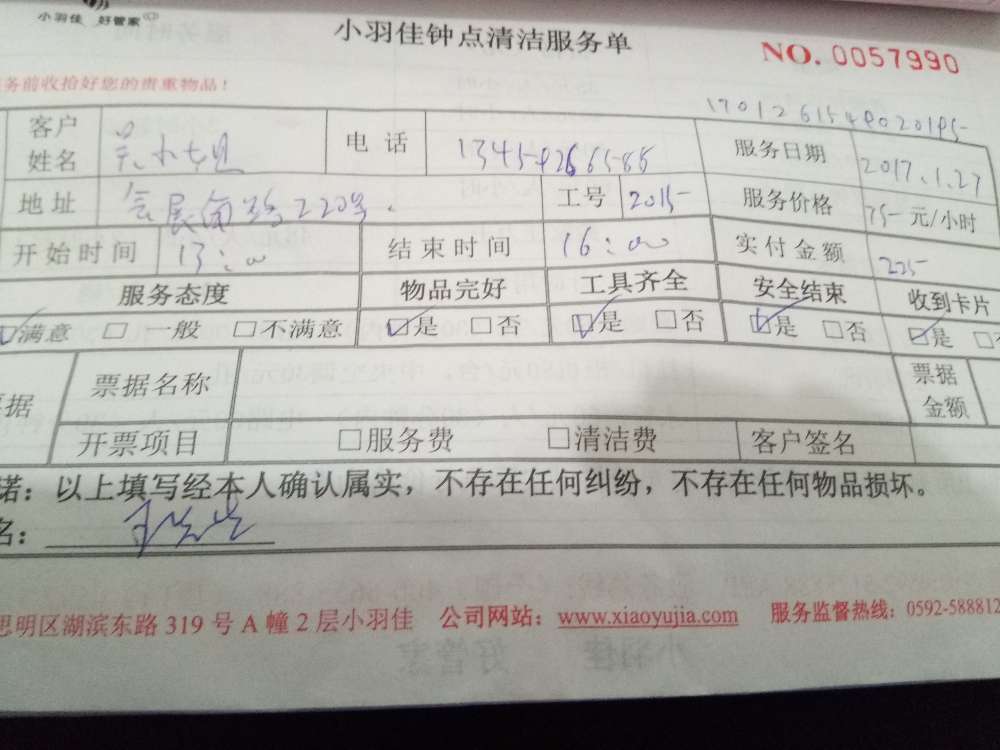 小羽佳 好管家
小羽佳钟点清洁服务单
NO. 0057990
务前收拾好您的贵重物品!
客户姓名 电话 服务日期 2017.1.27
地址 会展南路220号. 工号 2015 服务价格 75元/小时
开始时间 13:00 结束时间 16:00 实付金额 225
服务态度 物品完好 工具齐全 安全结束 收到卡片
☑满意 □一般 □不满意 ☑是 □否 ☑是 □否 ☑是 □否 ☑是 □
据 票据名称 票据金额
开票项目 □服务费 □清洁费 客户签名
诺:以上填写经本人确认属实,不存在任何纠纷,不存在任何物品损坏。
名:
思明区湖滨东路 319 号 A 幢 2 层小羽佳 公司网站:www.xiaoyujia.com 服务监督热线:0592-588812